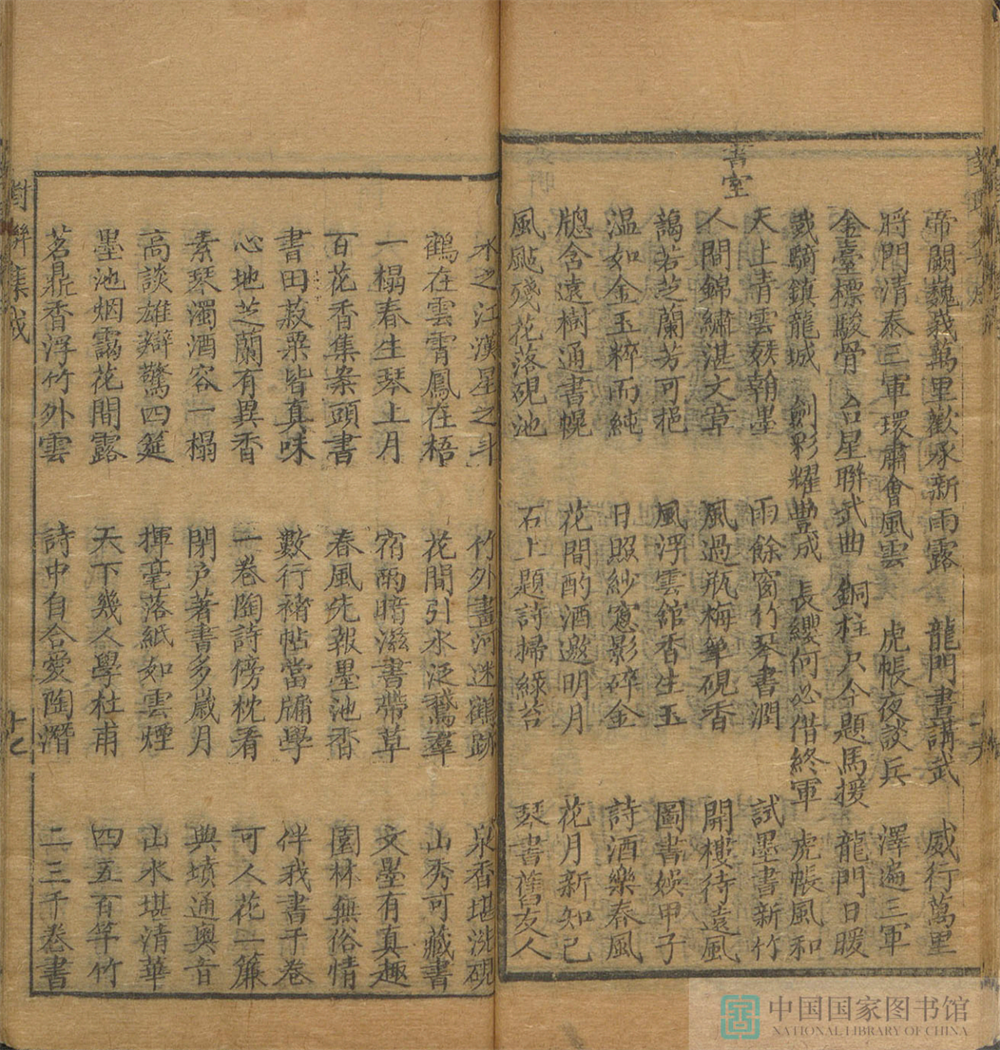 帝闕巍峩萬里歡承新雨露　龍門書講武　威行萬里
將門清泰三軍環肅會風雲　虎帳夜談兵　澤遍三軍
金臺標駿骨　台星聯武曲　銅柱只今題馬援　龍門日暖
戟騎鎮龍城　劍彩耀豊成　長纓何必借終軍　虎帳風和
書室
天上青雲　翰墨　雨餘窗竹琴書潤　試墨書新竹
人間錦繡湛文章　風過瓶梅筆硯香　開樓待遠風
藹若芝蘭芳可挹　風浮雲舘香生玉　圖書娯甲子
温如金玉粹而純　日照紗窻影碎金　詩酒樂春風
牕含遠樹通書幌　花間酌酒邀明月　花月新知己
風颭殘花落硯池　石上題詩掃綠苔　琴書舊友人
水之江漢星之斗　竹外畫河迷鶴跡　泉香堪洗硯
鶴在雲霄鳳在梧　花間引水泛鵞羣　山秀可藏書
一榻春生琴上月　宿雨暗滋書帶草　文墨有真趣
百花香集案頭書　春風先報墨池香　園林無俗情
書田菽粟皆真味　數行褚帖當牕學　伴我書千卷
心地芝蘭有異香　一卷陶詩傍枕看　可人花一簾
素琴濁酒容一榻　閉户著書多歲月　典墳通奥音
高談雄辯驚四筵　揮毫落紙如雲煙　山水堪清華
墨池烟靄花間露　天下幾人學杜甫　四五百竿竹
茗鼎香浮竹外雲　詩中自合愛陶潛　二三千卷書
對聯集成
十七
中国国家图书馆
NATIONAL LIBRARY OF CHINA